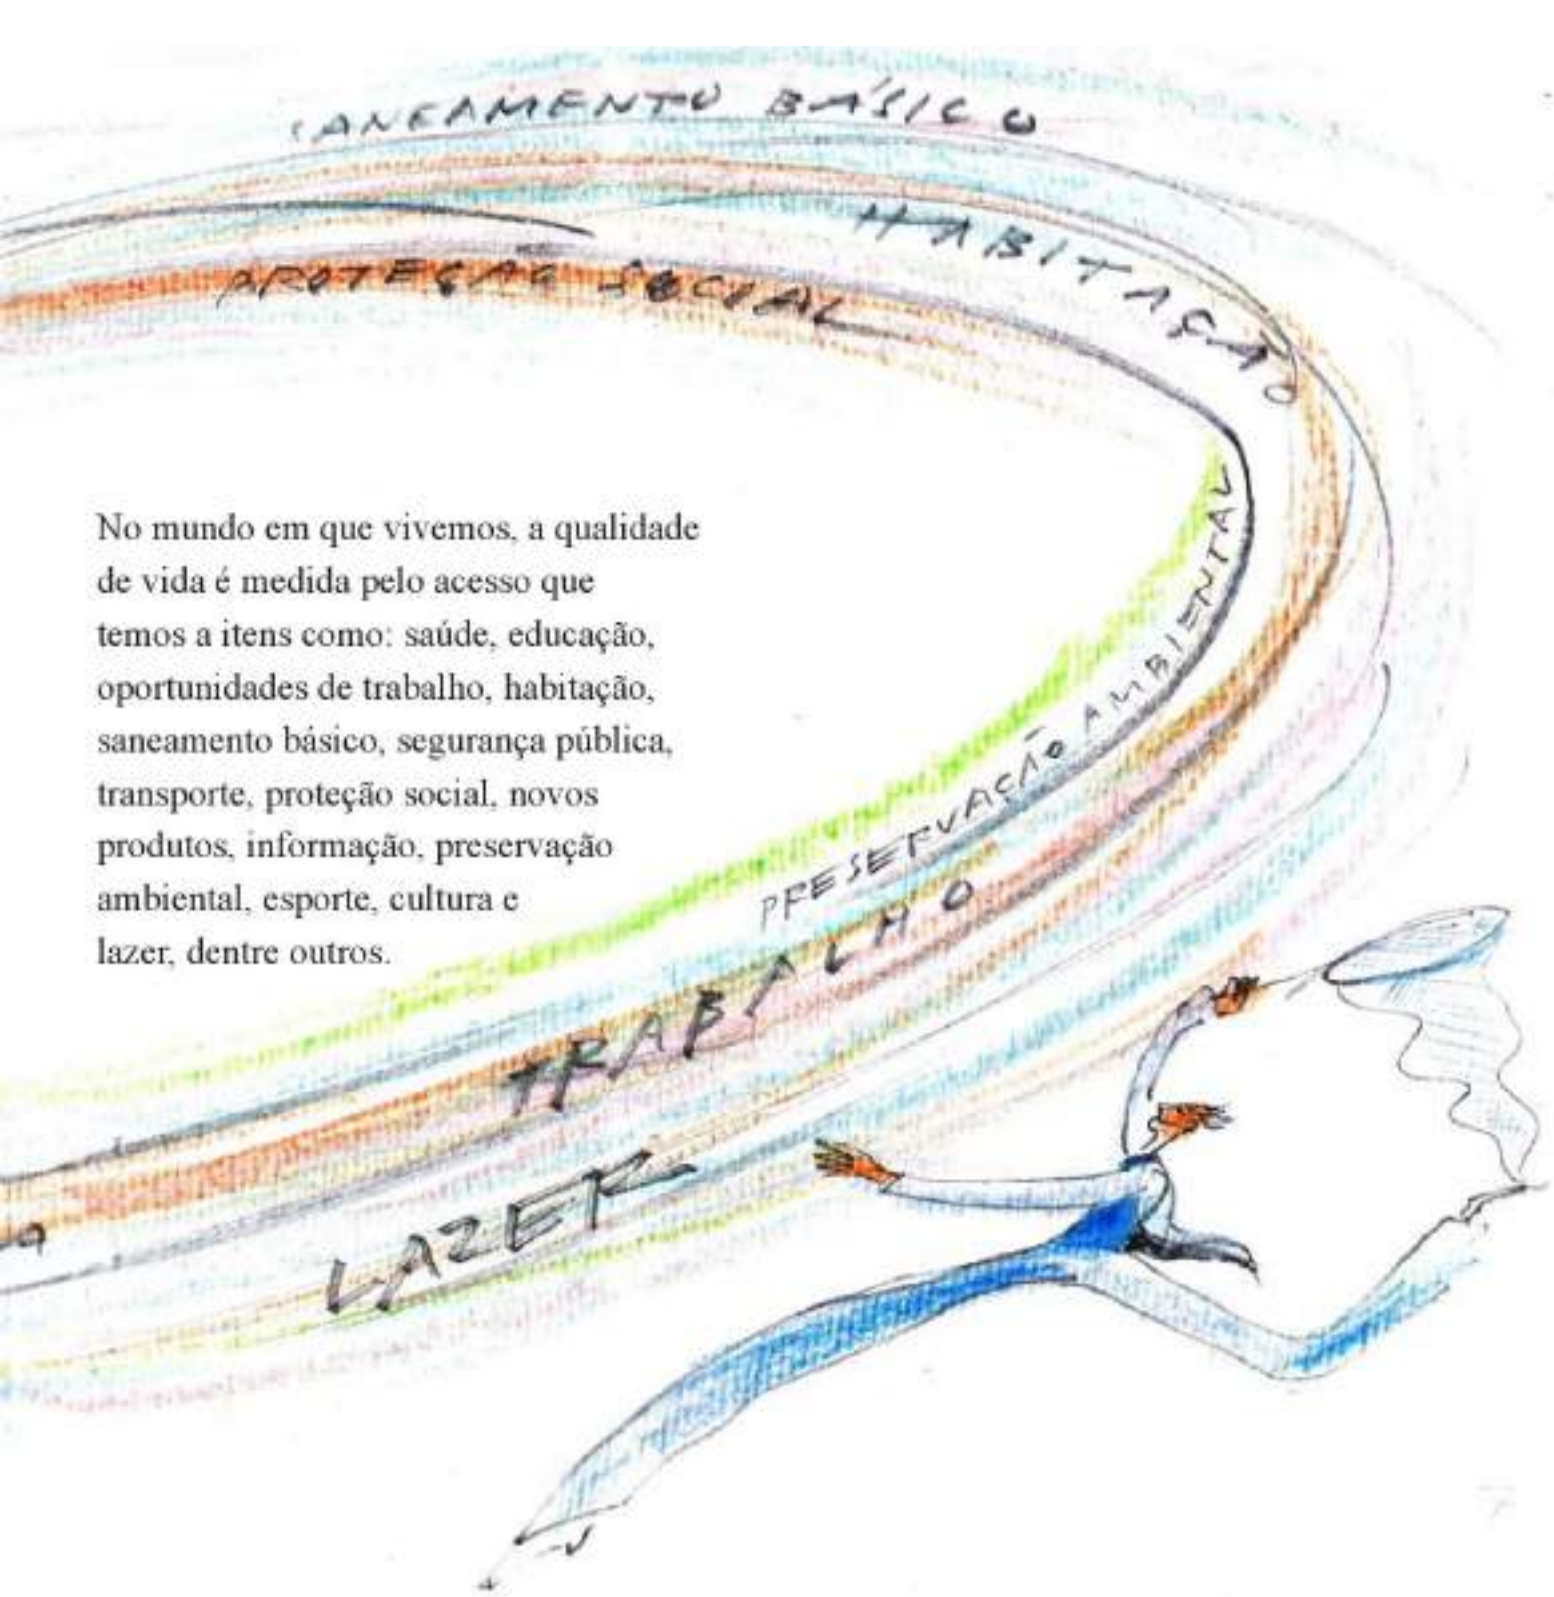 SANEAMENTO BÁSICO
HABITAÇÃO
PROTEÇÃO SOCIAL
No mundo em que vivemos, a qualidade
de vida é medida pelo acesso que
temos a itens como: saúde, educação,
oportunidades de trabalho, habitação,
saneamento básico, segurança pública,
transporte, proteção social, novos
produtos, informação, preservação
ambiental, esporte, cultura e
lazer, dentre outros.
PRESERVAÇÃO AMBIENTAL
TRABALHO
LAZER